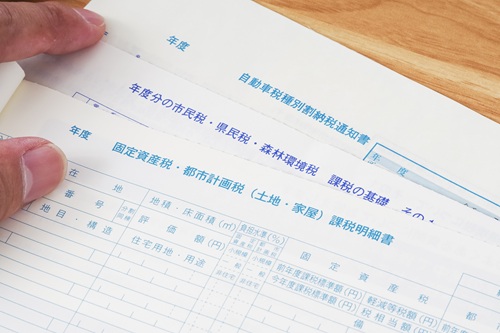 年度
自動車税種別割納税通知書
年度
年度分の市民税・県民税・森林環境税 課税の基礎 その
年度 固定資産税・都市計画税（土地・家屋）課税明細書
在 地
番 号
地目・構造
地積・床面積（㎡）
評 価 額（円）
住宅用地・用途
負担水準（%）
固 定 資 産 税
前年度課税標準額（円）
今年度課税標準額（円）
軽減等税額（円）
税相当額（円）
備
都